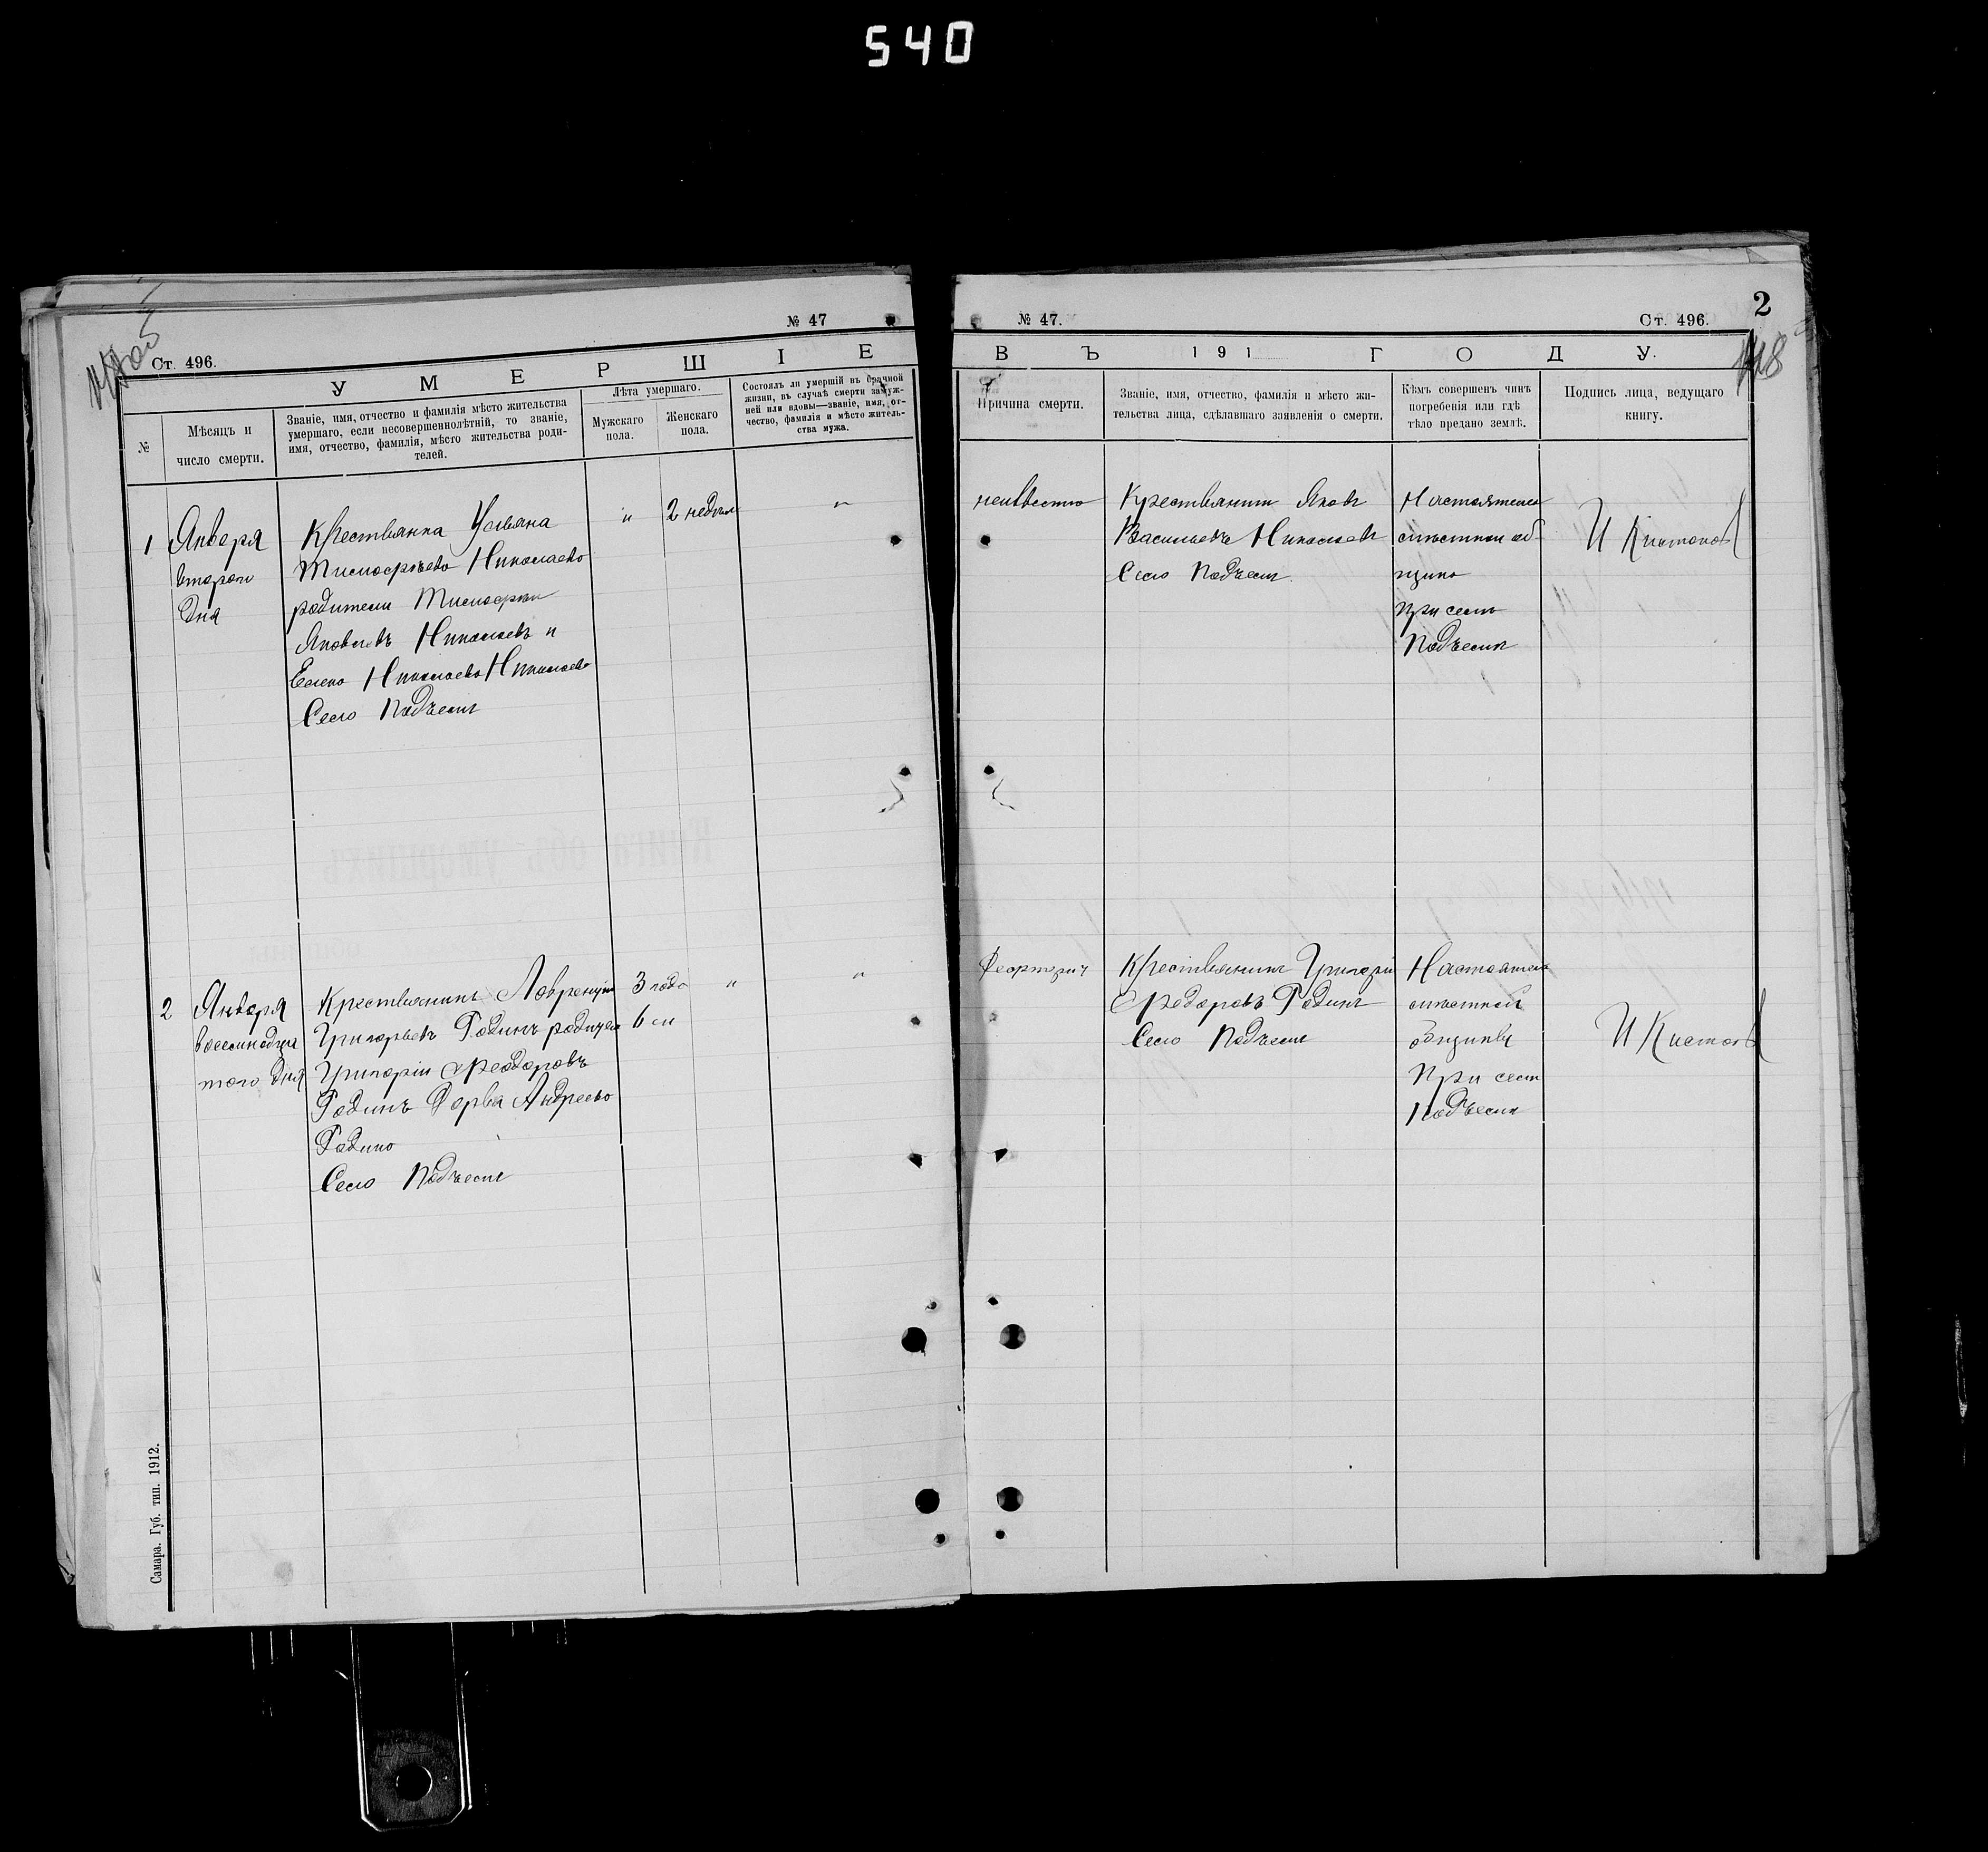 540
№ 47
Ст. 496.
УМЕРШІЕ
№
Мѣсяцъ и
число смерти.
Званіе, имя, отчество и фамилія мѣсто жительства
умершаго, если несовершеннолѣтній, то званіе,
имя, отчество, фамилія, мѣсто жительства роди-
телей.
Лѣта умершаго.
Мужскаго
пола.
Женскаго
пола.
Состоялъ ли умершій въ брачной
жизни, въ случаѣ смерти замуж-
ней или вдовы—званіе, имя, от-
чество, фамилія и мѣсто житель-
ства мужа.
1
Января
второго
дня
Крестьянка Ульяна
Тимофѣева Николаева
родители Тимофей
Яковлевъ Николаевъ и
Елена Николаева Николаева
Село Подъемъ
"
2 недѣли
"
2
Января
восемнадца
того дня
Крестьянинъ Лаврентій
Григорьевъ Родинъ родители
Григорій Федоровъ
Родинъ Дарья Андреева
Родина
Село Подъемъ
3 года
6 м
"
"
Самара. Губ. тип. 1912.
№ 47.
Ст. 496.
2
ВЪ 191 ГОДУ.
118
Причина смерти.
Званіе, имя, отчество, фамилія и мѣсто жи-
тельства лица, сдѣлавшаго заявленія о смерти.
Кѣмъ совершенъ чинъ
погребенія или гдѣ
тѣло предано землѣ.
Подпись лица, ведущаго
книгу.
неизвестно
Крестьянинъ Яковъ
Васильевъ Николаевъ
Село Подъемъ
Настоятель
мѣстной об
щины
при селѣ
Подъемъ
И
Крестьянинъ Григорій
Федоровъ Родинъ
Село Подъемъ
Настоятель
мѣстной
общины
При селѣ
Подъемъ
И